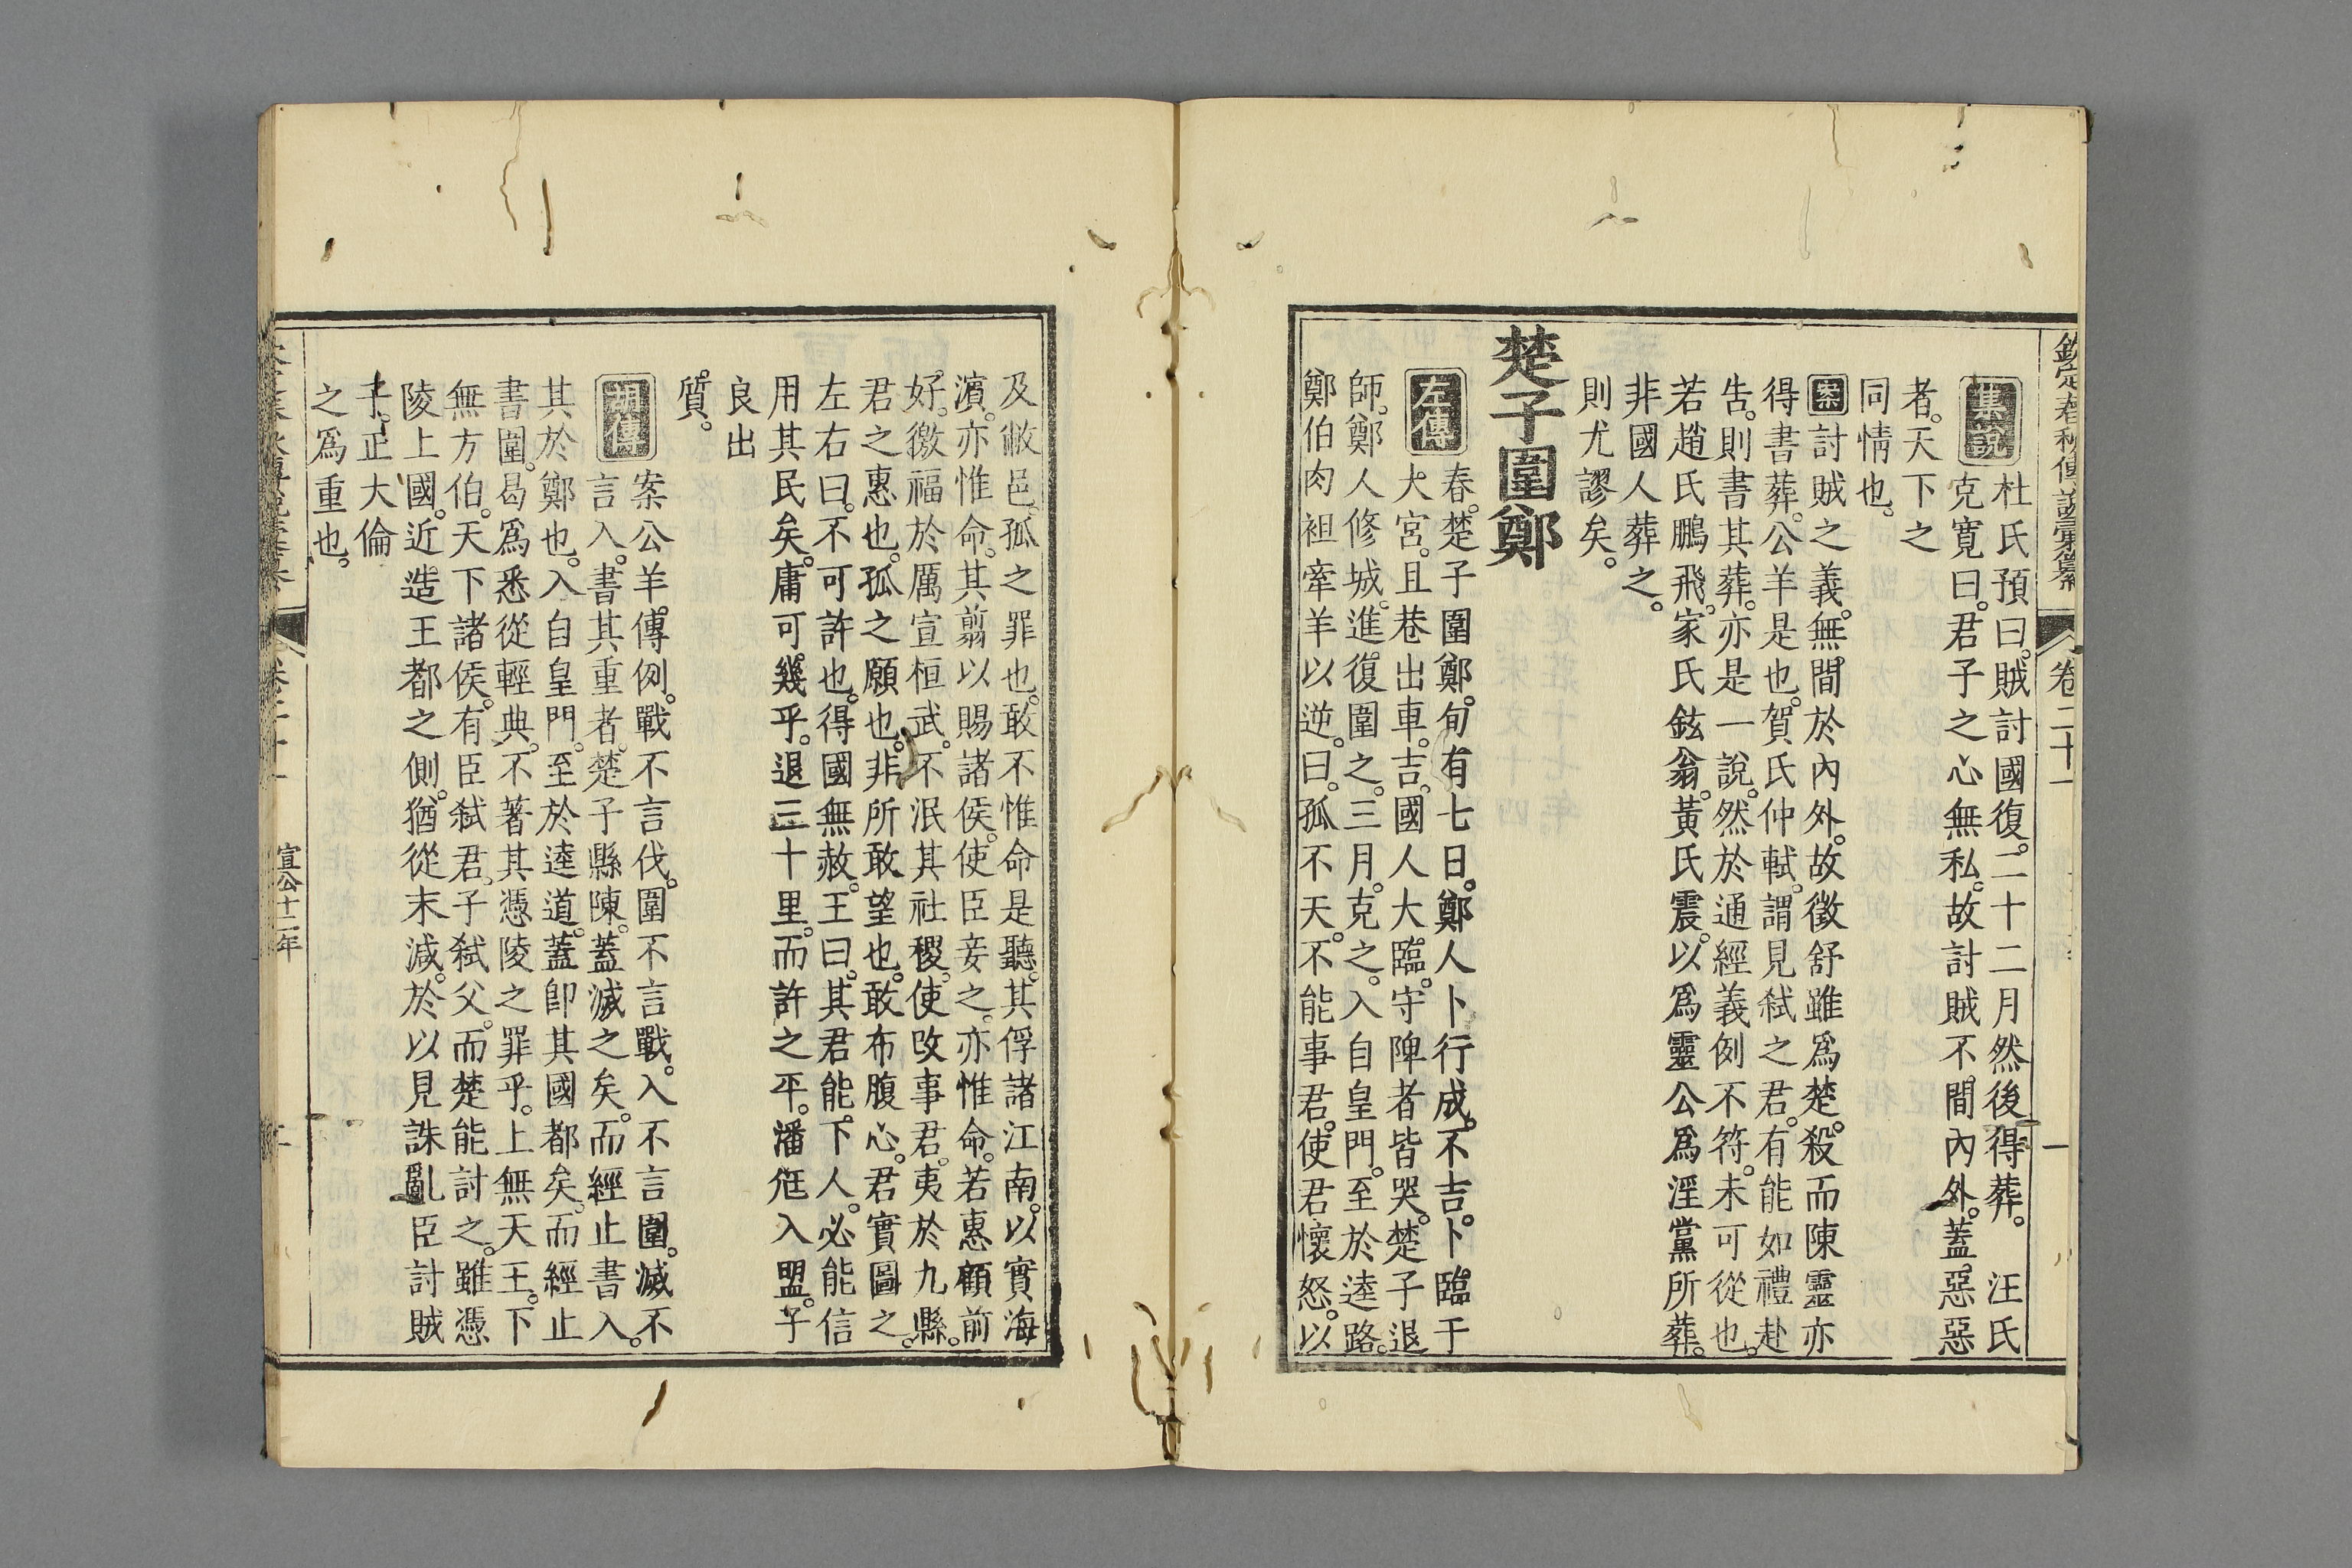 欽定春秋傳說彙纂　卷二十一　一
集說　杜氏預曰。賊討國復。二十二月然後得葬。　汪氏
克寬曰。君子之心無私。故討賊不間內外。蓋惡惡
者。天下之
同情也。
案討賊之義。無間於內外。故徵舒雖爲楚殺。而陳靈亦
得書葬。公羊是也。賀氏仲軾。謂見弒之君。有能如禮赴
告。則書其葬。亦是一說。然於通經義例不符。未可從也。
若趙氏鵬飛。家氏鉉翁。黃氏震。以爲靈公爲淫黨所葬。
非國人葬之。
則尤謬矣。
楚子圍鄭
左傳　春。楚子圍鄭。旬有七日。鄭人卜行成。不吉。卜臨于
大宮。且巷出車。吉。國人大臨。守陴者皆哭。楚子退
師。鄭人修城。進復圍之。三月。克之。入自皇門。至於逵路。
鄭伯肉袒牽羊以逆。曰。孤不天。不能事君。使君懷怒。以
及敝邑。孤之罪也。敢不惟命是聽。其俘諸江南。以實海
濱。亦惟命。其翦以賜諸侯。使臣妾之。亦惟命。若惠顧前
好。徼福於厲宣桓武。不泯其社稷。使改事君。夷於九縣。
君之惠也。孤之願也。非所敢望也。敢布腹心。君實圖之。
左右曰。不可許也。得國無赦。王曰。其君能下人。必能信
用其民矣。庸可幾乎。退三十里。而許之平。潘尫入盟。子
良出
質。
胡傳　案公羊傳例。戰不言伐。圍不言戰。入不言圍。滅不
言入。書其重者。楚子縣陳。蓋滅之矣。而經止書入。
其於鄭也。入自皇門。至於逵道。蓋卽其國都矣。而經止
書圍。曷爲悉從輕典。不著其憑陵之罪乎。上無天王。下
無方伯。天下諸侯。有臣弒君。子弒父。而楚能討之。雖憑
陵上國。近造王都之側。猶從末減。於以見誅亂臣討賊
子。正大倫
之爲重也。
卷二十一　宣公十二年　二